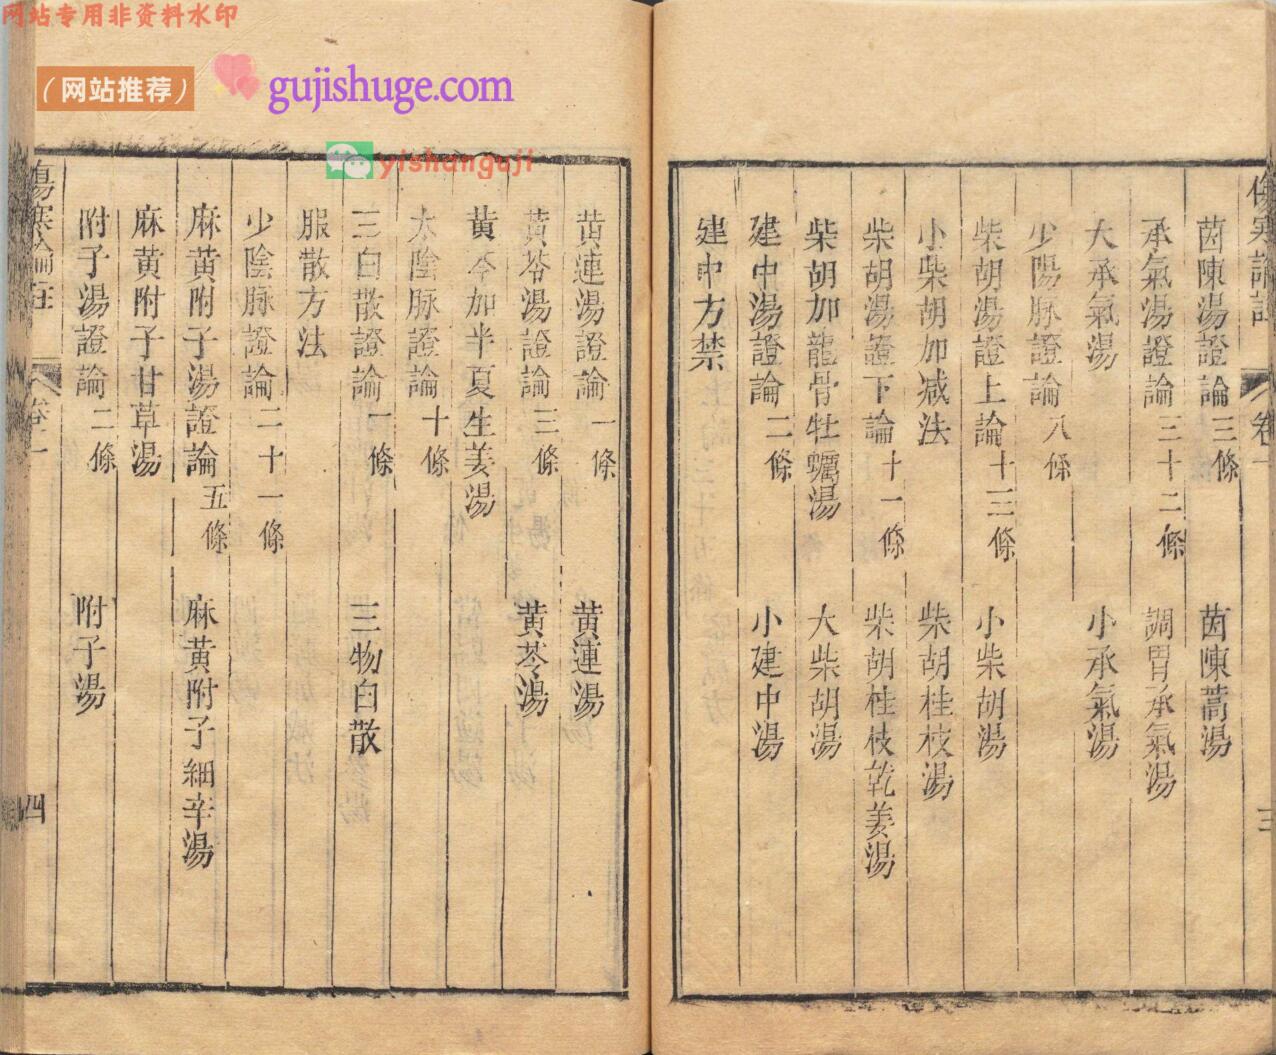 网站专用非资料水印
（网站推荐）
gujishuge.com
yishanguji
卷一
三
茵陳湯證論三條 茵陳蒿湯
承氣湯證論三十二條 調胃承氣湯
大承氣湯 小承氣湯
少陽脉證論八條
柴胡湯證上論十三條 小柴胡湯
小柴胡加减法 柴胡桂枝湯
柴胡湯證下論十一條 柴胡桂枝乾姜湯
柴胡加龍骨牡蠣湯 大柴胡湯
建中湯證論二條 小建中湯
建中方禁
黄連湯證論一條 黄連湯
黄芩湯證論三條 黄芩湯
黄芩加半夏生姜湯
太陰脉證論十條
三白散證論一條 三物白散
服散方法
少陰脉證論二十一條
麻黄附子湯證論五條 麻黄附子細辛湯
麻黄附子甘草湯
附子湯證論二條 附子湯
傷寒論註
卷一
四